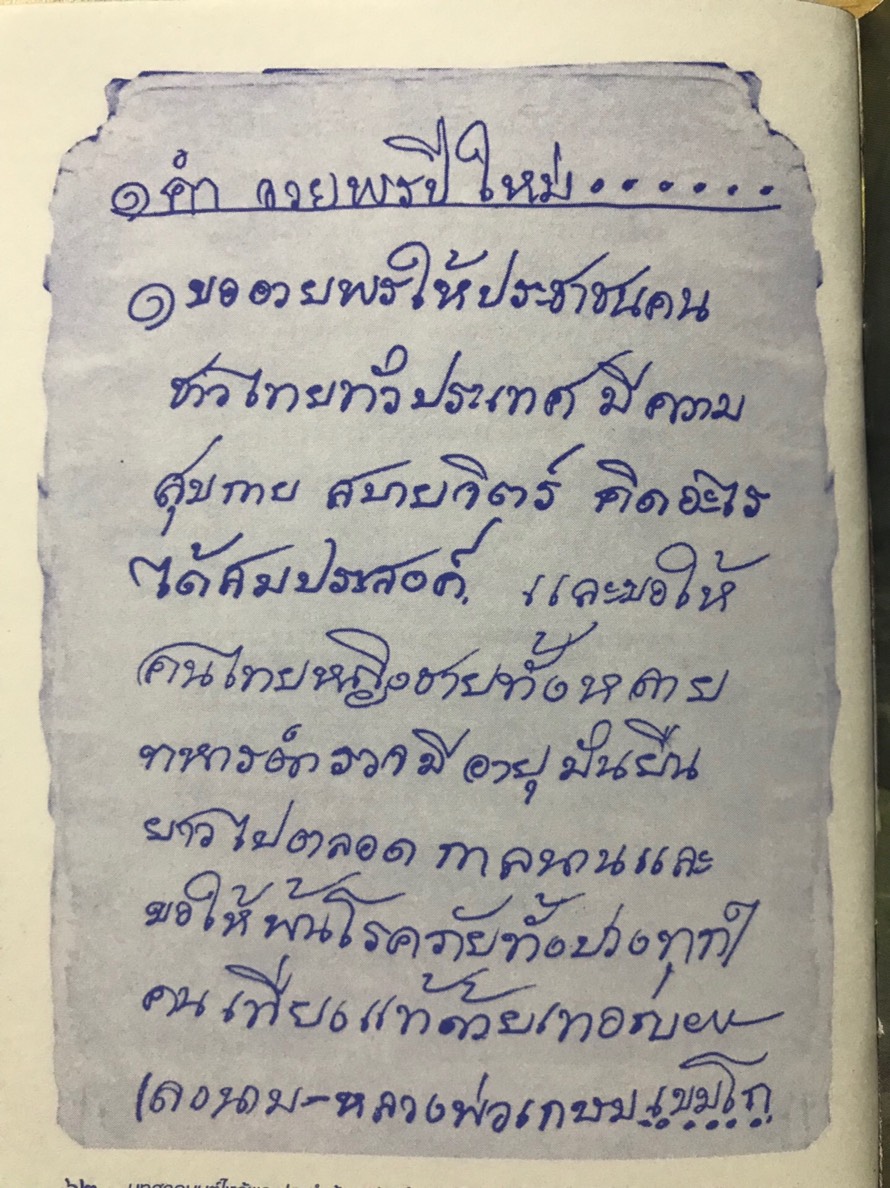 ๑ คำ อวยพรปีใหม่......
๑ ขออวยพรให้ประชาชนคน
ชาวไทยทั่วประเทศ มีความ
สุขกาย สบายจิตร์ คิดอะไร
ได้สมประสงค์. และขอให้
คนไทยหญิงชายทั้งหลาย
ทหารตำรวจมีอายุมั่นยืน
ยาวไปตลอด กาลนานและ
ขอให้พ้นโรคภัยทั้งปวงทุกๆ
คน เที่ยงแท้ด้วยเทอญ
(ลงนาม-หลวงพ่อเกษม เขมโก
๖๒